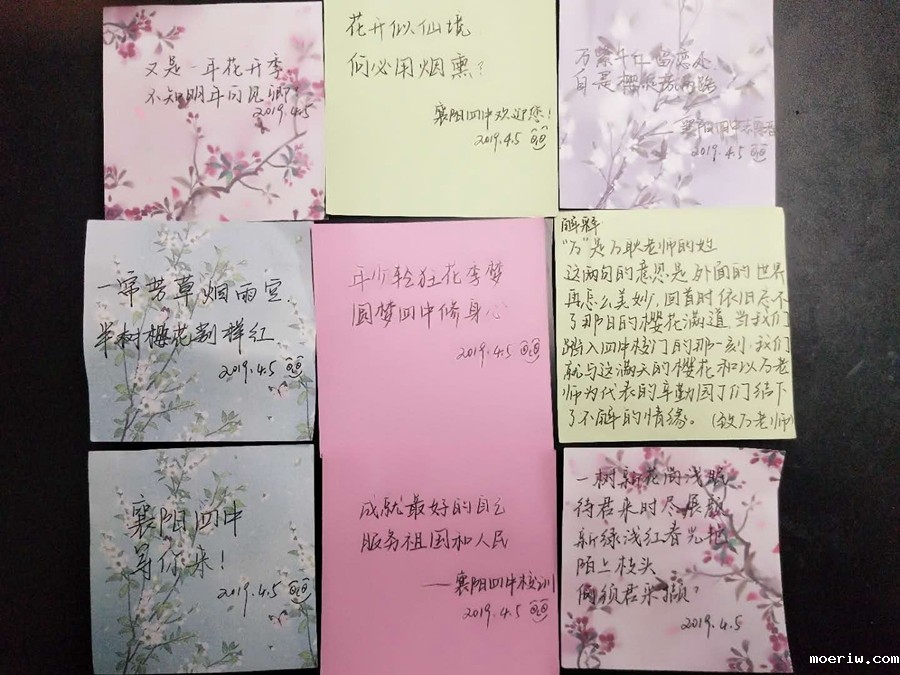 又是一年花开季
不知明年可见卿?
2019.4.5
花开似仙境
何必用烟熏?
襄阳四中欢迎您!
2019.4.5
万紫千红留恋处
自是樱花
襄阳四中
2019.4.5
一帘芳草烟雨空
半树樱花别样红
2019.4.5
年少轻狂花季梦
圆梦四中修身心
2019.4.5
解释
“万”是万耿老师的姓
这两句的意思是外面的世界
再怎么美妙,回首时依旧忘不
了那日的樱花满道,当我们
踏入四中校门的那一刻,我们
就与这满天的樱花和以万老
师为代表的辛勤园丁们结下
了不解的情缘。(致万老师)
襄阳四中
等你来!
2019.4.5
成就最好的自己
服务祖国和人民
——襄阳四中校训
2019.4.5
一树新花尚浅眠
待君来时尽展颜
新绿浅红春光艳
陌上枝头
何须君采撷?
2019.4.5
moeriw.com